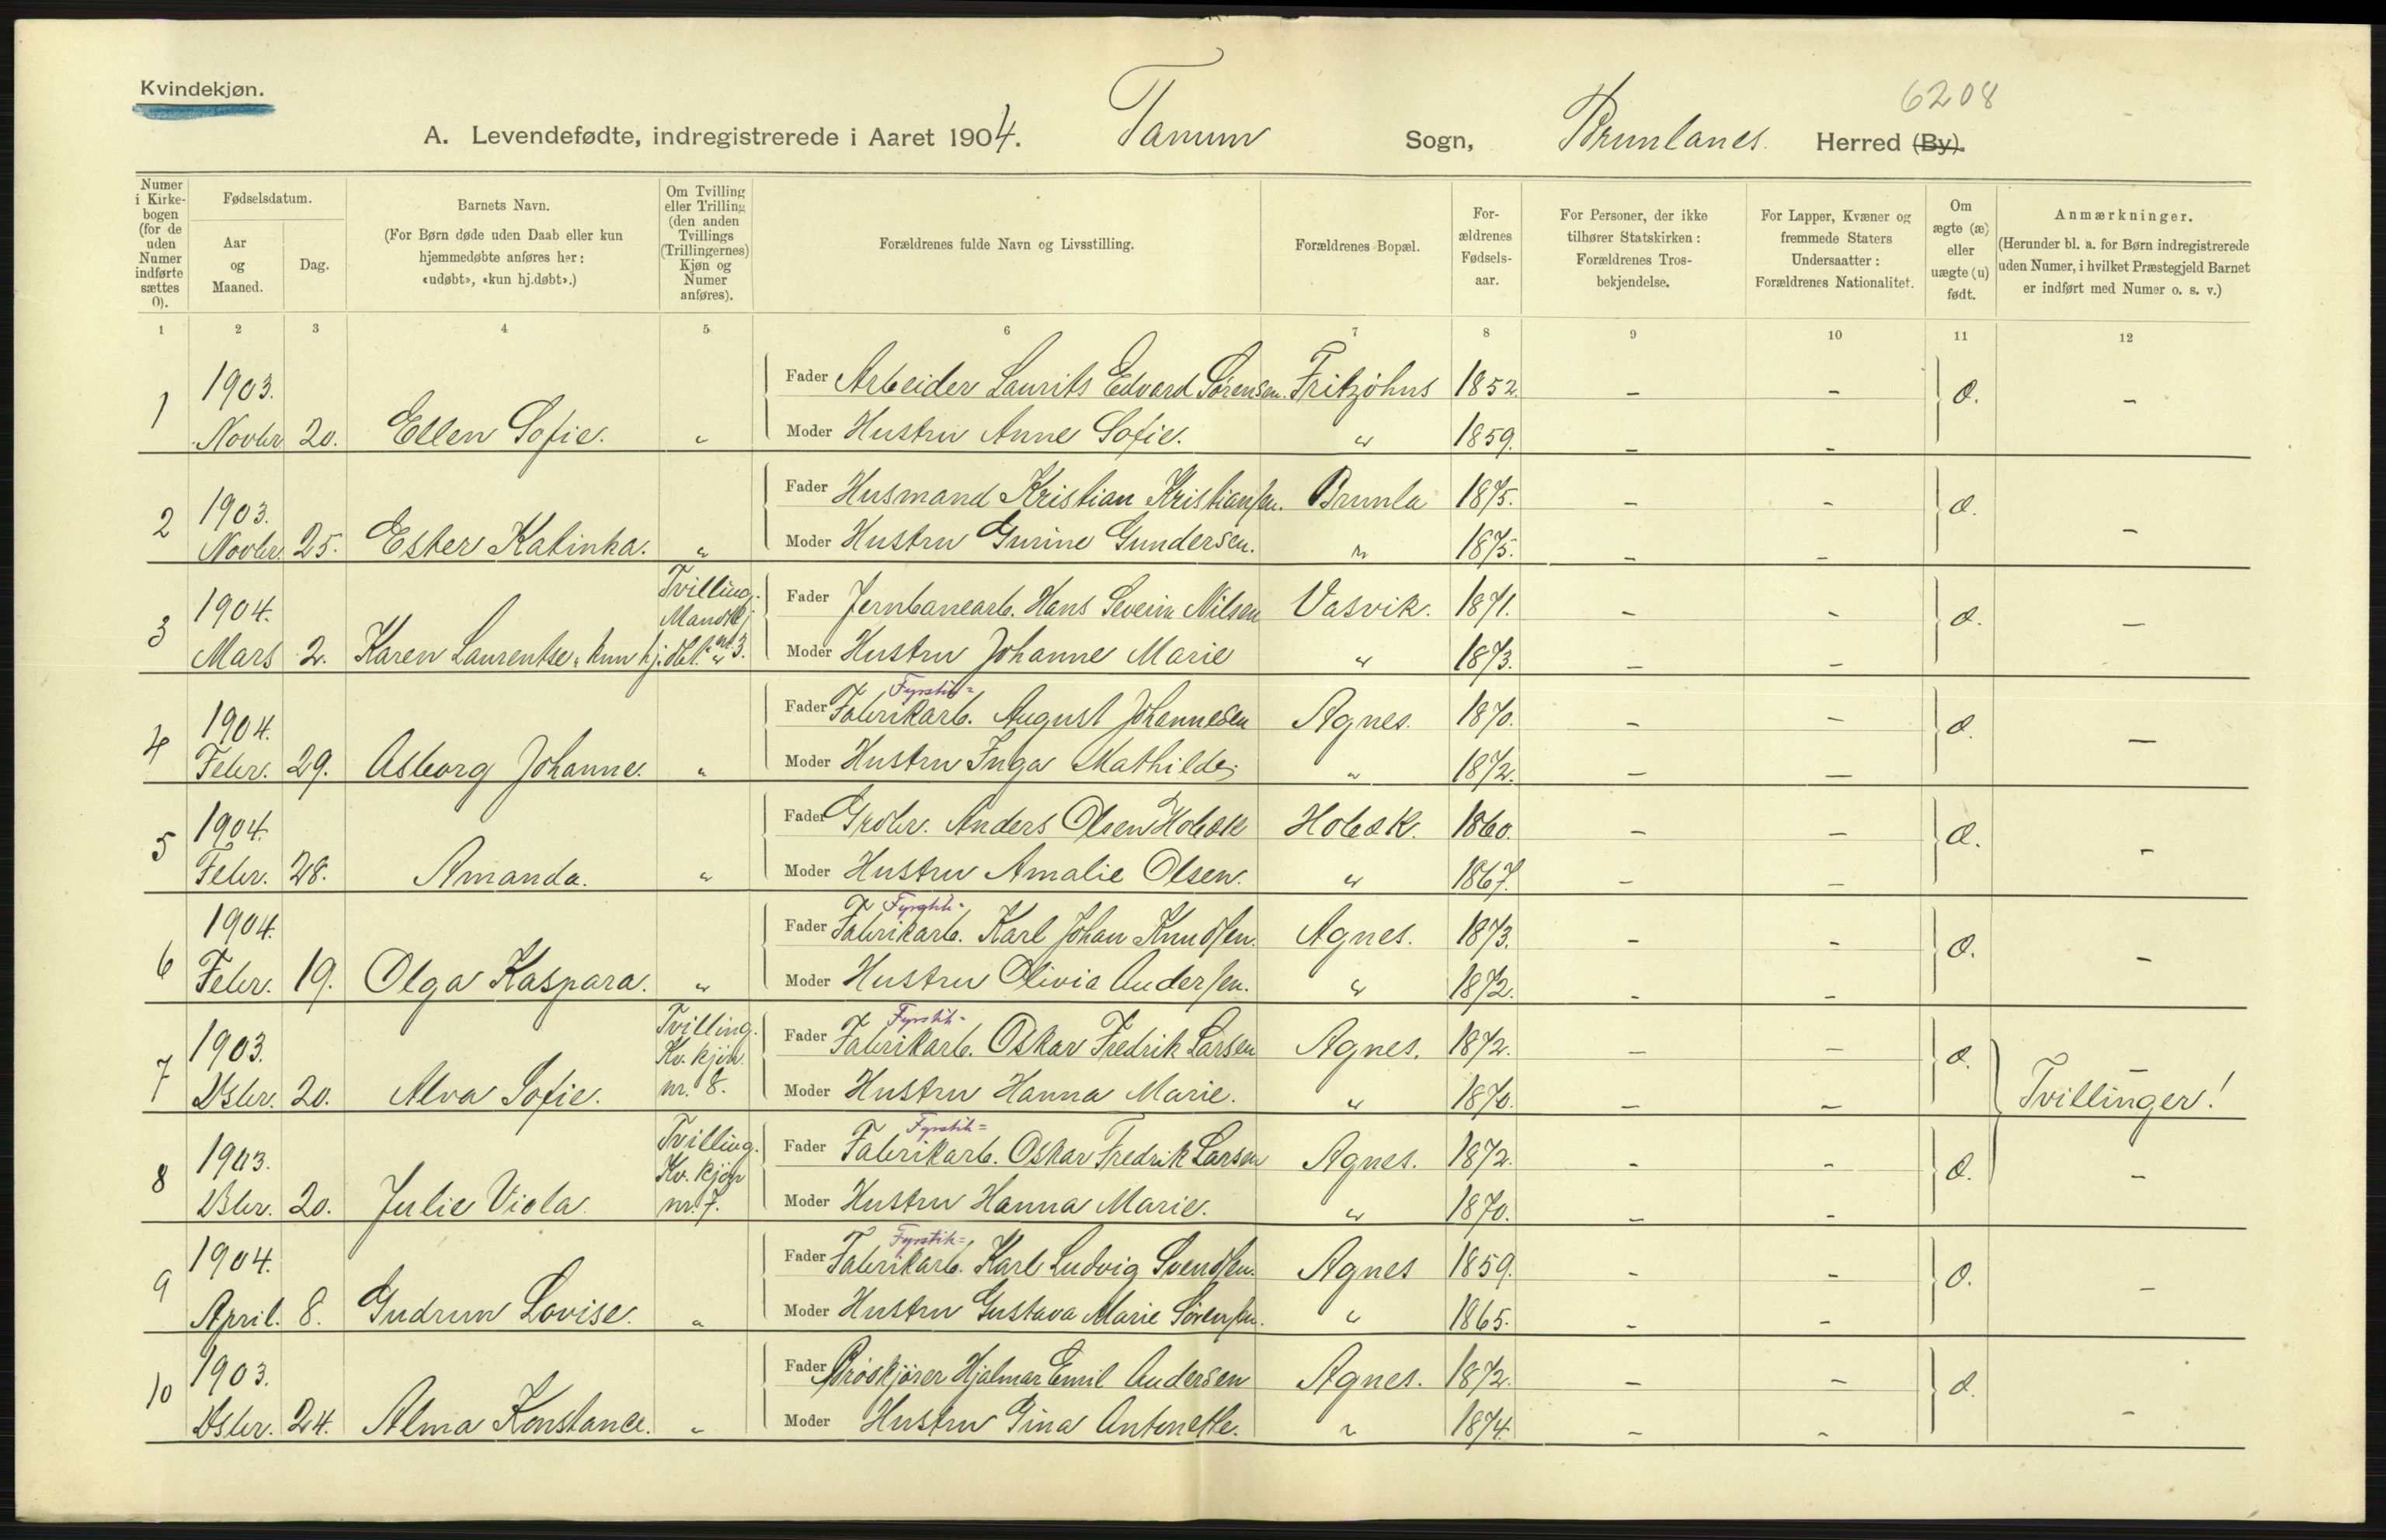 Kvindekjøn.
6208
A. Levendefødte, indregistrerede i Aaret 1904. Tanum Sogn, Brunlanes. Herred (By).
Numer i Kirkebogen (for de uden Numer indførte sættes 0).
Fødselsdatum.
Aar og Maaned.
Dag.
Barnets Navn.
(For Børn døde uden Daab eller kun hjemmedøbte anføres her: «udøbt», «kun hj.døbt».)
Om Tvilling eller Trilling (den anden Tvillings (Trillingernes) Kjøn og Numer anføres).
Forældrenes fulde Navn og Livsstilling.
Forældrenes Bopæl.
For-ældrenes Fødsels-aar.
For Personer, der ikke tilhører Statskirken: Forældrenes Tros-bekjendelse.
For Lapper, Kvæner og fremmede Staters Undersaatter: Forældrenes Nationalitet.
Om ægte (æ) eller uægte (u) født.
Anmærkninger.
(Herunder bl. a. for Børn indregistrerede uden Numer, i hvilket Præstegjeld Barnet er indført med Numer o. s. v.)
1 2 3 4 5 6 7 8 9 10 11 12
1 1903. Fader Arbeider Laurits Edvard Sørensen. Fritzøhus 1852. - - æ. -
Novbr. 20. Ellen Sofie. " Moder Hustru Anne Sofie. " 1859. - -
2 1903. Fader Husmand Kristian Kristiansen. Brunla 1875. - - æ. -
Novbr. 25. Ester Katinka. " Moder Hustru Gurine Gundersen. " 1875. - -
3 1904. Tvilling. Mandkj. nr. 3. Fader Jernbanearb. Hans Severin Nilsen Vasvik. 1871. - - æ. -
Mars 2. Karen Laurentse "kun hj. dbt." Moder Hustru Johanne Marie " 1873. - -
4 1904. Fader Fyrstik= Fabrikarb. August Johannesen Agnes. 1870. - - æ. -
Febr. 29. Asborg Johanne. " Moder Hustru Inga Mathilde. " 1872. - -
5 1904. Fader Grdbr. Anders Olsen Hobæk Hobæk. 1860. - - æ. -
Febr. 28. Amanda. " Moder Hustru Amalie Olsen. " 1867. - -
6 1904. Fader Fyrstik- Fabrikarb. Karl Johan Knudsen. Agnes. 1873. - - æ. -
Febr. 19. Olga Kaspara. " Moder Hustru Olivia Andersen. " 1872. - -
7 1903. Tvilling. Kv. kjøn. nr. 8. Fader Fyrstik- Fabrikarb. Oskar Fredrik Larsen Agnes. 1872. - - æ. -
Dsbr. 20. Alva Sofie. Moder Hustru Hanna Marie. " 1870. - - Tvillinger!
8 1903. Tvilling. Kv. kjøn nr. 7. Fader Fyrstik= Fabrikarb. Oskar Fredrik Larsen Agnes. 1872. - - æ. -
Dsbr. 20. Julie Viola. Moder Hustru Hanna Marie. " 1870. - -
9 1904. Fader Fyrstik= Fabrikarb. Karl Ludvig Svendsen. Agnes 1859. - - æ. -
April. 8. Gudrun Lovise. " Moder Hustru Gustava Marie Sørensen. " 1865. - -
10 1903. Fader Brøskjører Hjalmar Emil Andersen Agnes. 1872. - - æ. -
Dsbr. 24. Alma Konstance. " Moder Hustru Gina Antonette. " 1874. - -